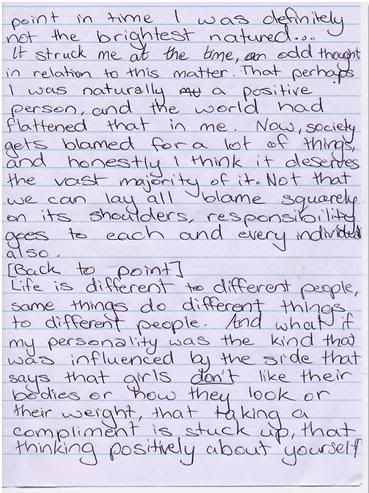 point in time I was definitely
not the brightest natured...
It struck me at the time, an odd thought
in relation to this matter. That perhaps
I was naturally a positive
person, and the world had
flattened that in me. Now, society
gets blamed for a lot of things,
and honestly I think it deserves
the vast majority of it. Not that
we can lay all blame squarely
on its shoulders, responsibility
goes to each and every individual
also.
[Back to point]
Life is different to different people,
same things do different things
to different people. And what if
my personality was the kind that
was influenced by the side that
says that girls don't like their
bodies or how they look or
their weight, that taking a
compliment is stuck up, that
thinking positively about yourself